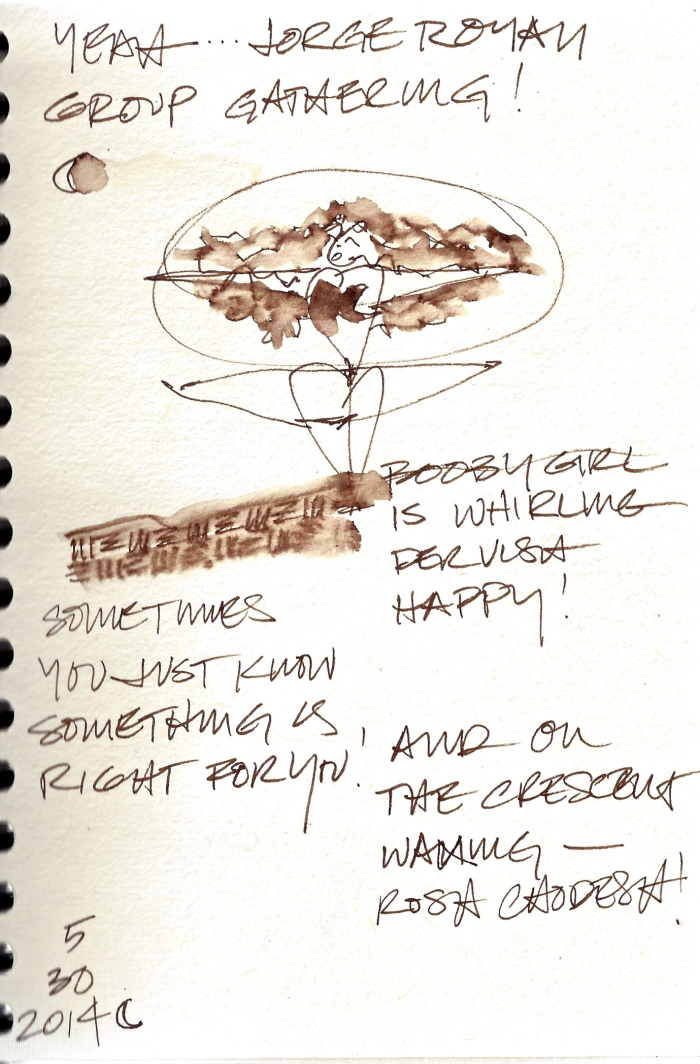 YEAH... JORGE ROYAN
GROUP GATHERING!
BOOBY GIRL
IS WHIRLING
DERVISH
HAPPY!
SOMETIMES
YOU JUST KNOW
SOMETHING IS
RIGHT FOR YOU!
AND ON
THE CRESCENT
WANING —
ROSA
5
30
2014